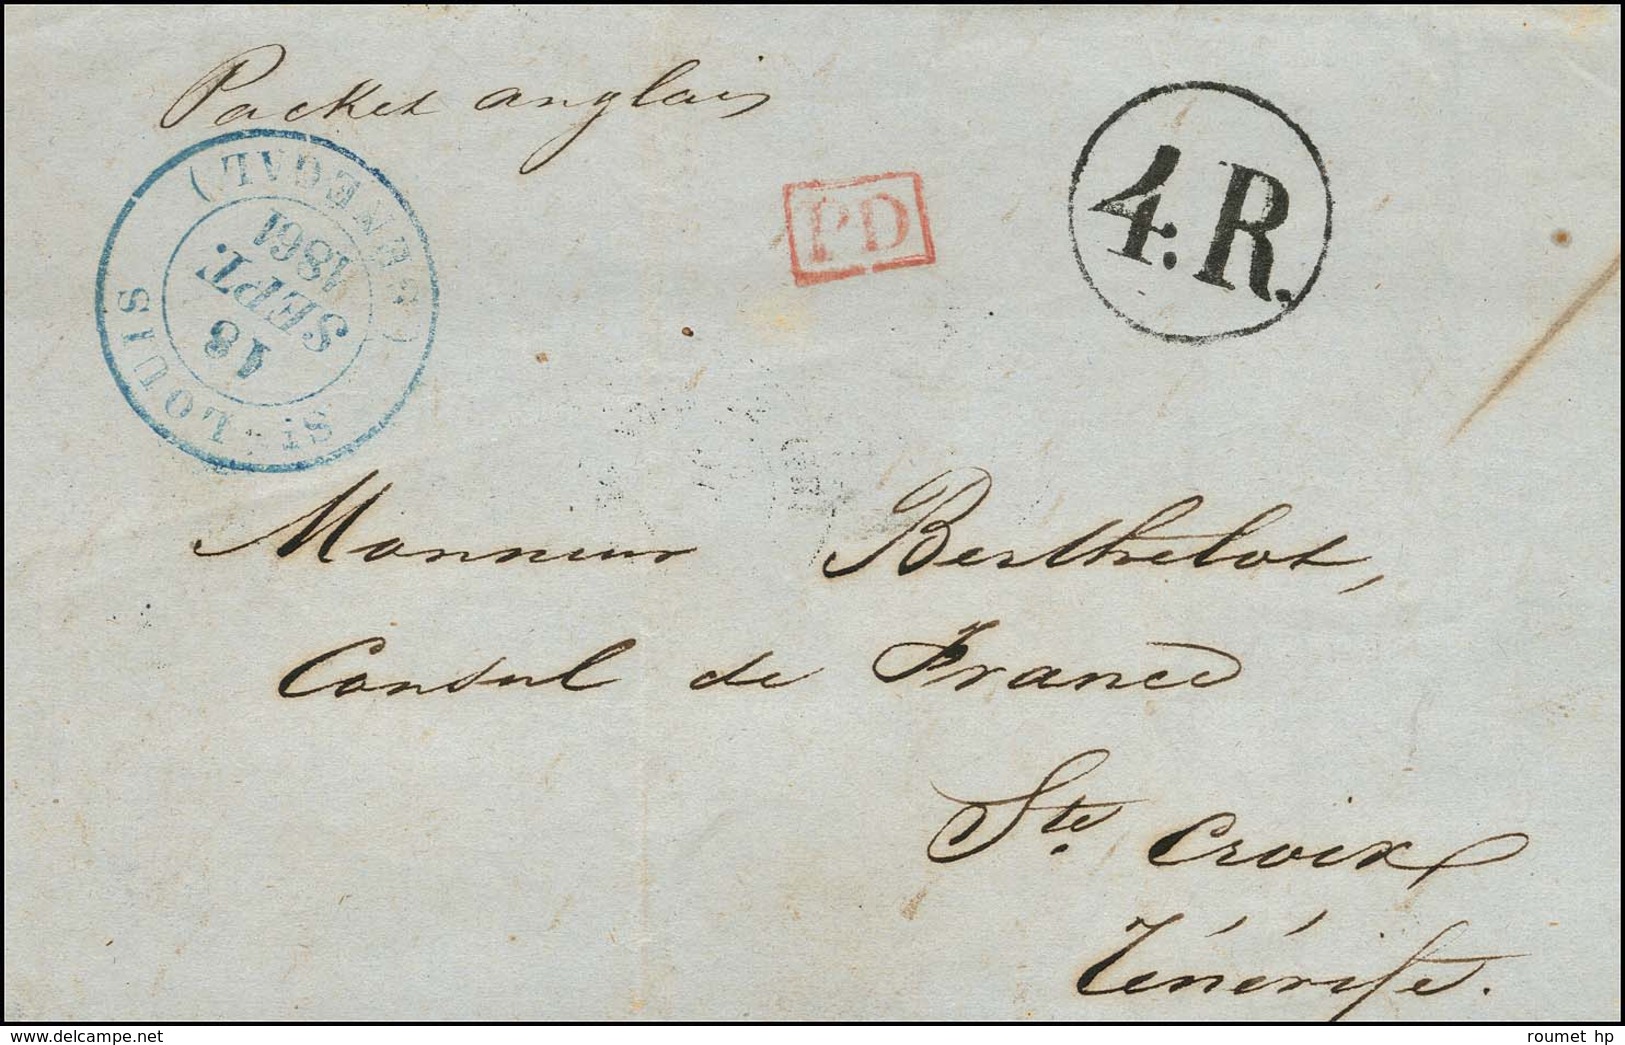 Packet anglais
ST LOUIS
(SÉNÉGAL)
18
SEPT.
1861
PD
4.R.
Monsieur Berthelot,
Consul de France
Ste Croix
Ténérife.
delcampe.net
roumet hp